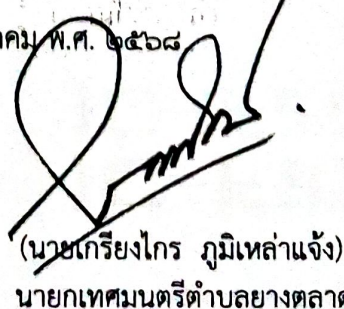 คม พ.ศ. ๒๕๖๘
(นายเกรียงไกร ภูมิเหล่าแจ้ง)
นายกเทศมนตรีตำบลยางตลาด